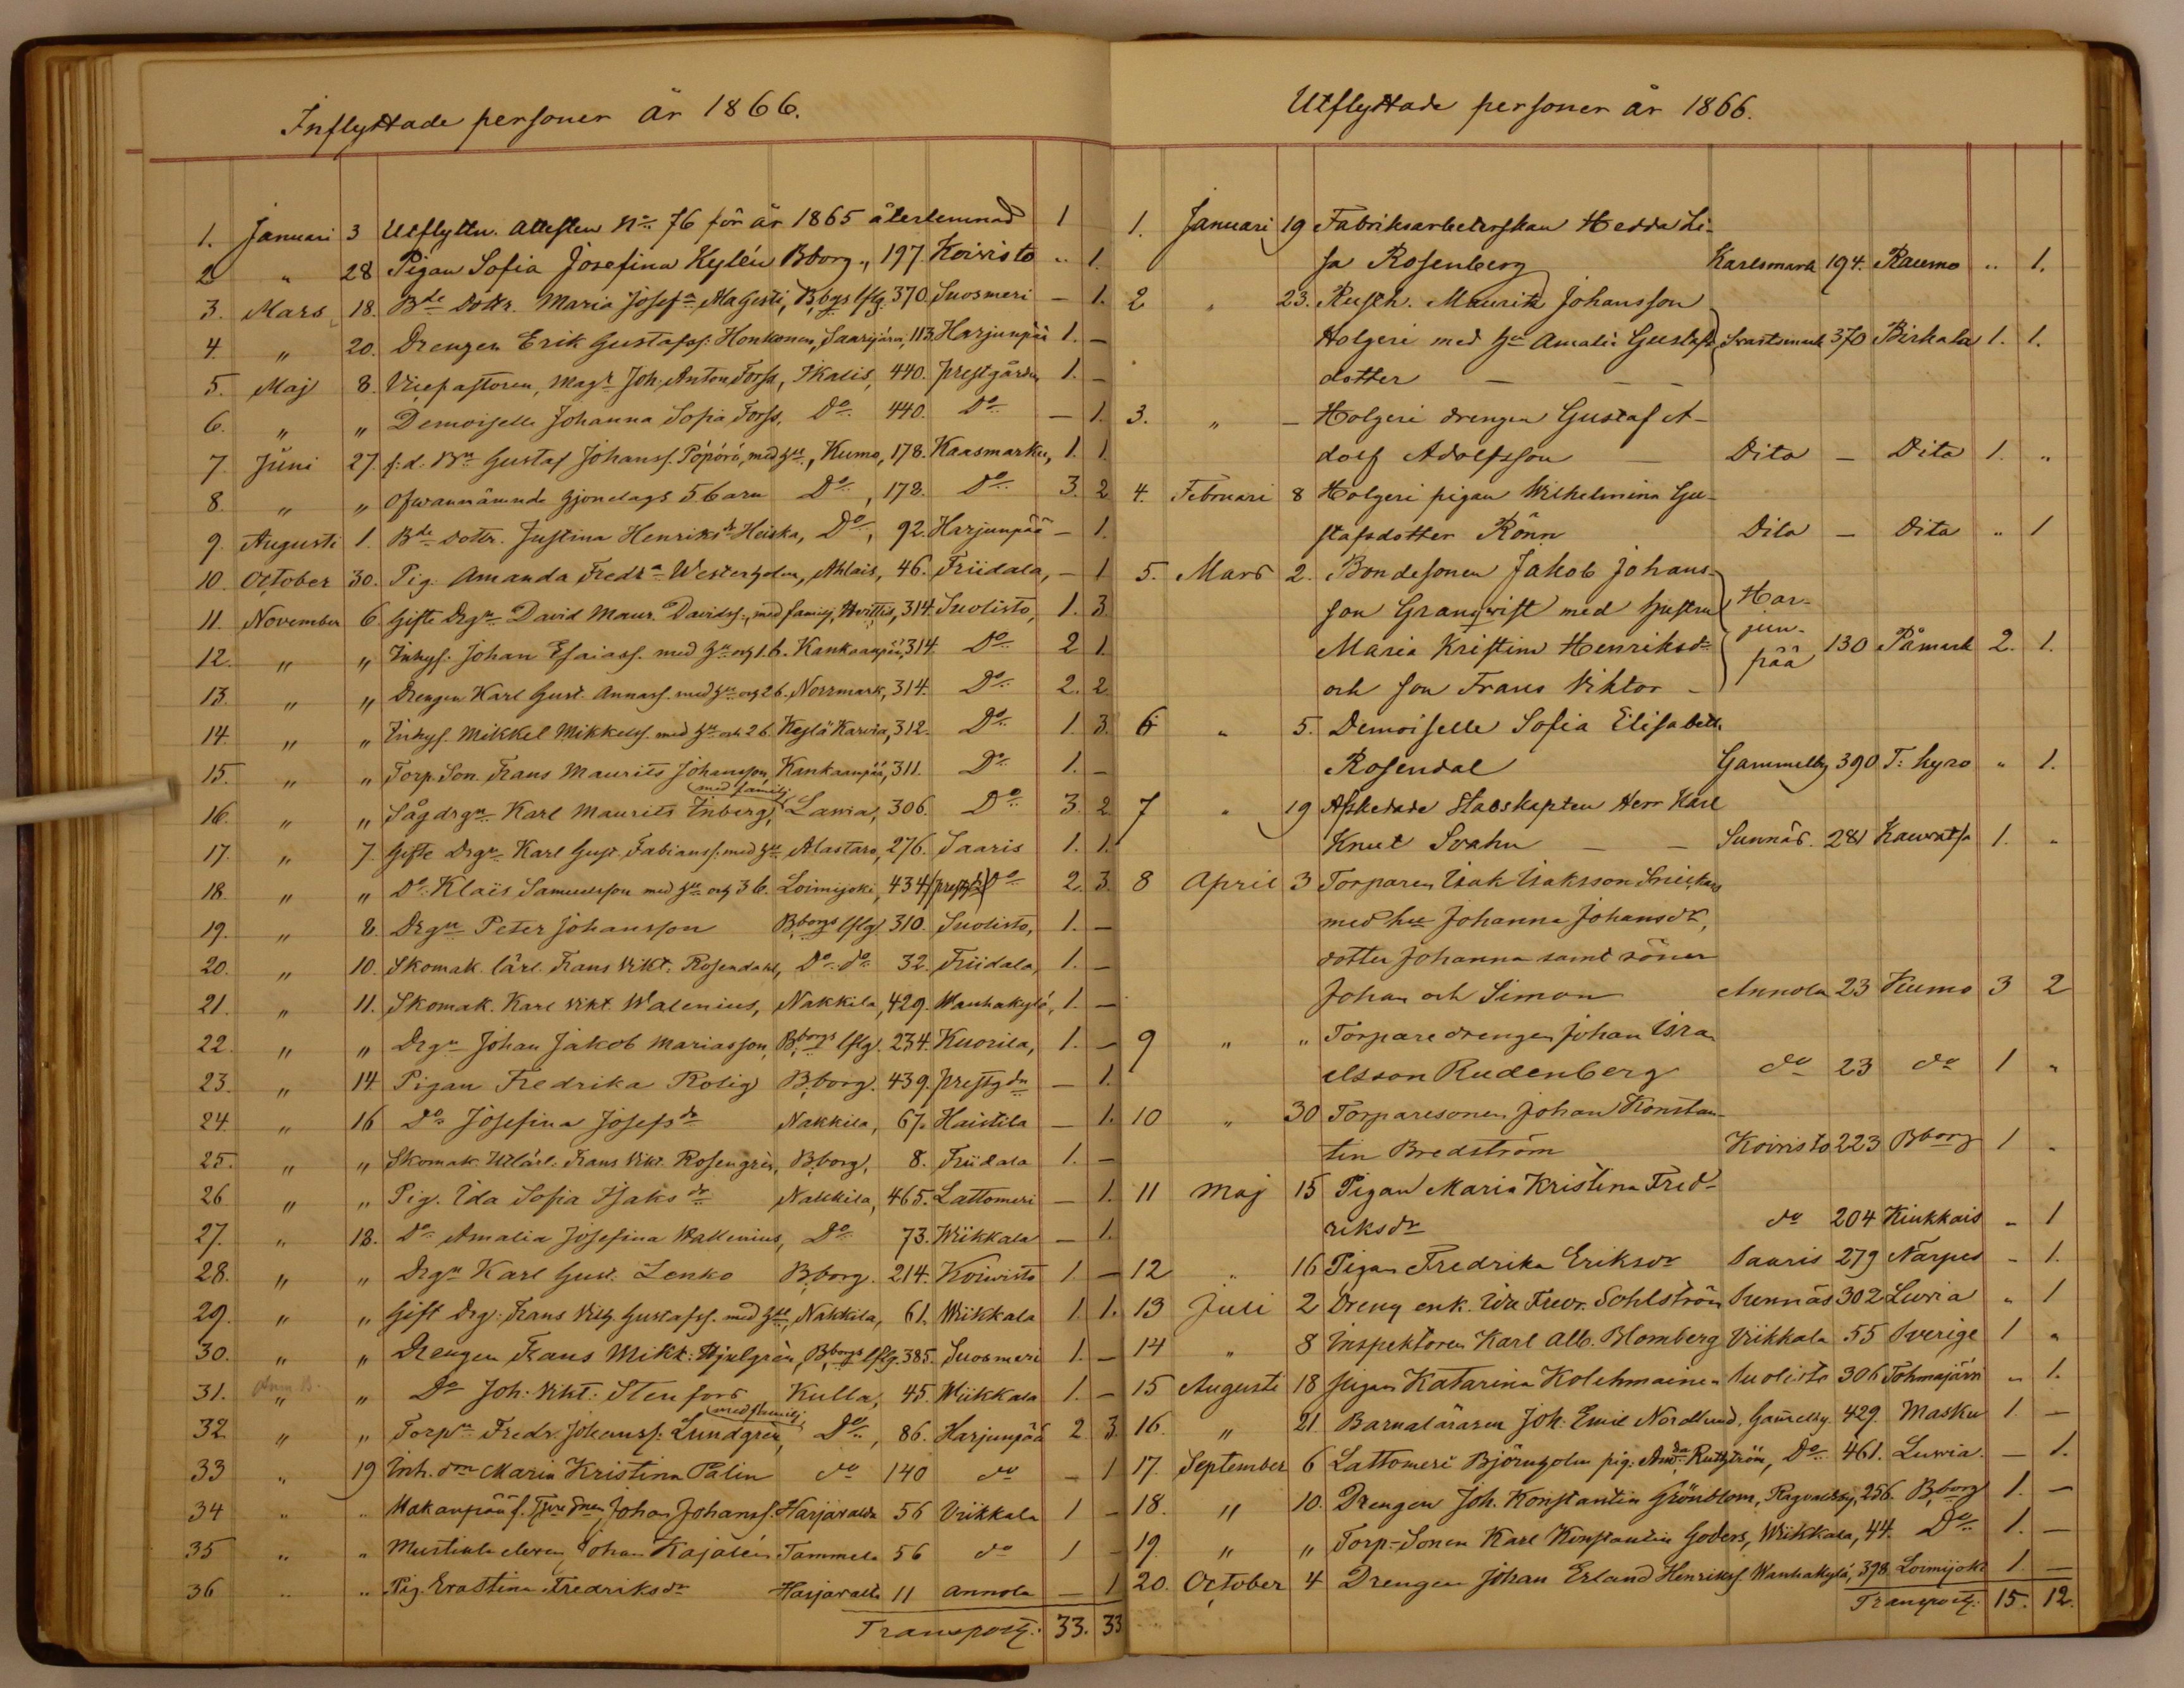 Inflyttade personer år 1866.
1. Januari 3 Utflyttn. attesten No 76 för år 1865 återlemnad 1
2 " 28 Pigan Sofia Josefina Kylén Bborg., 197. Koivisto .. 1.
3. Mars 18. Bde dottr. Maria Josefa Magerti, Bbgs lflg. 370. Suosmeri — 1.
4. " 20. Drengen Erik Gustafss. Honkonen, Saarijärvi, 113. Harjunpää 1. —
5. Maj 8. Vicepastoren, Magr Joh. Anton Forss, Ikalis, 440. prestgården 1. —
6. " " Demoiselle Johanna Sofia Forss, Do 440. Do — 1.
7. Juni 27. f: d. Bn Gustaf Johanss. Pöpörö, med hu, Kumo, 178. Kaasmarku, 1. 1.
8. " " Ofvannämnde gjondags 5 barn Do, 178. Do 3. 2
9. Augusti 1. Bde dottr. Justina Henriksdr Heiska, Do, 92. Harjunpää — 1.
10. October 30. Pig. Amanda Fredra Westerholm, Ahlais, 46. Friidala, — 1
11. November 6. Gifte Drgn David Maur. Davidss., med familj, Hvittis, 314. Suolisto, 1. 3.
12. " " Inhys. Johan Esaiass. med hu och 1 b. Kankaanpää, 314. Do 2 1.
13. " " Drengen Karl Gust. Annass. med hu och 2 b. Norrmark, 314. Do 2. 2
14. " " Inhys. Mikkel Mikkelss. med hu och 2 b. Kejlä Karvia, 312. Do 1. 3.
15. " " Torp. Son. Frans Maurits Johansson, Kankaanpää, 311. Do 1. —
16. " " Sågdrgn Karl Maurits Enberg, med familj Lavia, 306. Do 3. 2
17. " 7. Gifte Drgn Karl Gust. Fabianss. med hu Alastaro, 276. Saaris 1. 1.
18. " " Do Klais Samuelsson med hu och 3 b. Loimijoki, 434 Do 2. 3.
19. " 8. Drgn Peter Johansson Bborgs lflg. 310. Suolisto, 1. —
20. " 10. Skomak. lärl. Frans Vikt. Rosendahl, Do do 32. Friidala, 1. —
21. " 11. Skomak. Karl Vikt. Walenius, Nakkila, 429. Wanhakylä, 1. —
22. " " Drgn Johan Jakob Mariasson, Bborgs lflg. 234. Kuorila, 1. —
23. " 14. Pigan Fredrika Rolig Bborg. 439. prestgdn — 1.
24. " 16 Do Josefina Josefsdr Nakkila, 67. Haistila — 1.
25. " " Skomak. Utlärl. Frans Vikt. Rosengrén, Bborg, 8. Friidala 1. —
26. " " Pig. Ida Sofia Isaksdr Nakkila, 465. Lattomeri — 1.
27. " 18. Do Amalia Josefina Wallenius, Do 73. Wiikkala — 1.
28. " " Drgn Karl Gust. Lenko Bborg. 214. Koiwisto 1. —
29. " " Gift Drg: Frans Vilh. Gustafss. med hu, Nakkila, 61. Wiikkala 1 1.
30. " " Drengen Frans Mikk: Hjulgrén, Bborgs lflg. 385. Suosmeri 1. —
31. " " Do Joh. Vikt. Stenfors Kulla, 45. Wiikkala 1. —
32. " " Torpn Fredr. Johanss. Lundgren, med familj Do, 86. Harjunpää 2. 3.
33 " 19 Inh. dm Maria Kristina Palin do 140 do — 1
34 " " Makanpää s. Johan Johanss. Harjavalta 56 Viikkala 1 —
35 " " Mustiala eleven Johan Kajalén Tammela 56 do 1 —
36 " " Pig. Erastina Fredriksdr Harjavalta 11 Annola — 1
Transport. 33. 33
Utflyttade personer år 1866.
1. Januari 19 Fabriksarbeterskan Hedda Li-
sa Rosenberg Karlsmark 194. Raumo .. 1.
2 " 23. Rusth. Maurits Johansson
Holgeri med hu Amalia Gustafs Svartsmark 370 Birkala 1. 1.
dotter — — —
3. " — Holgeri drengen Gustaf A-
dolf Adolfsson — Dito — Dito 1. "
4. Februari 8 Holgeri pigan Wilhelmina Gu-
stafsdotter Rönn Dito — Dito " 1
5. Mars 2. Bondesonen Jakob Johans-
son Granqvist med hustru Har-
Maria Kristina Henriksdr jun- 130 Påmark 2. 1.
och son Frans Viktor — pää
6 " 5. Demoiselle Sofia Elisabeth
Rosendal Gammelby 390 T: kyro " 1.
7 " 19 Afskedade Stabskapten Herr Karl
Knut Svahn — — Sunnäs. 281 Kauvatsa 1. "
8 April 3 Torparen Isak Isaksson Snickars
med hu Johanna Johansdr,
dotter Johanna samt söner
Johan och Simon Annola 23 Kumo 3 2
9 " " Torparedrengen Johan Isra
elsson Rudenberg do 23 do 1 "
10 " 30 Torparesonen Johan Konstan-
tin Bredström Koivisto 223 Bborg 1 "
11 Maj 15 Pigan Maria Kristina Fred-
riksdr do 204 Kiukkais " 1
12 " 16 Pigan Fredrika Eriksdr Saaris 279 Närpes " 1.
13 Juli 2 Dreng enk. Ida Fredr. Sohlström Sunnäs 302 Luvia " 1
14 " 8 Inspektoren Karl Alb. Blomberg Viikkala 55 Sverige 1 "
15 Augusti 18 pigan Katarina Kolehmainen Suolisto 306 Tohmajärvi " 1.
16. " 21. Barnaläraren Joh. Emil Nordlund. Gamelby. 429. Masku 1. —
17. September 6 Lattomeri Björnholm pig: Amda Ruthström, Do 461. Luvia. — 1.
18. " 10. Drengen Joh. Konstantin Grönblom, Ragvaldsby, 256. Bborg 1. —
19. " " Torp-Sonen Karl Konstantin Goders, Wiikkala, 44. Do 1. —
20. October 4 Drengen Johan Erland Henrikss. Wanhakylä, 398. Loimijoki 1. —
Transport. 15. 12.